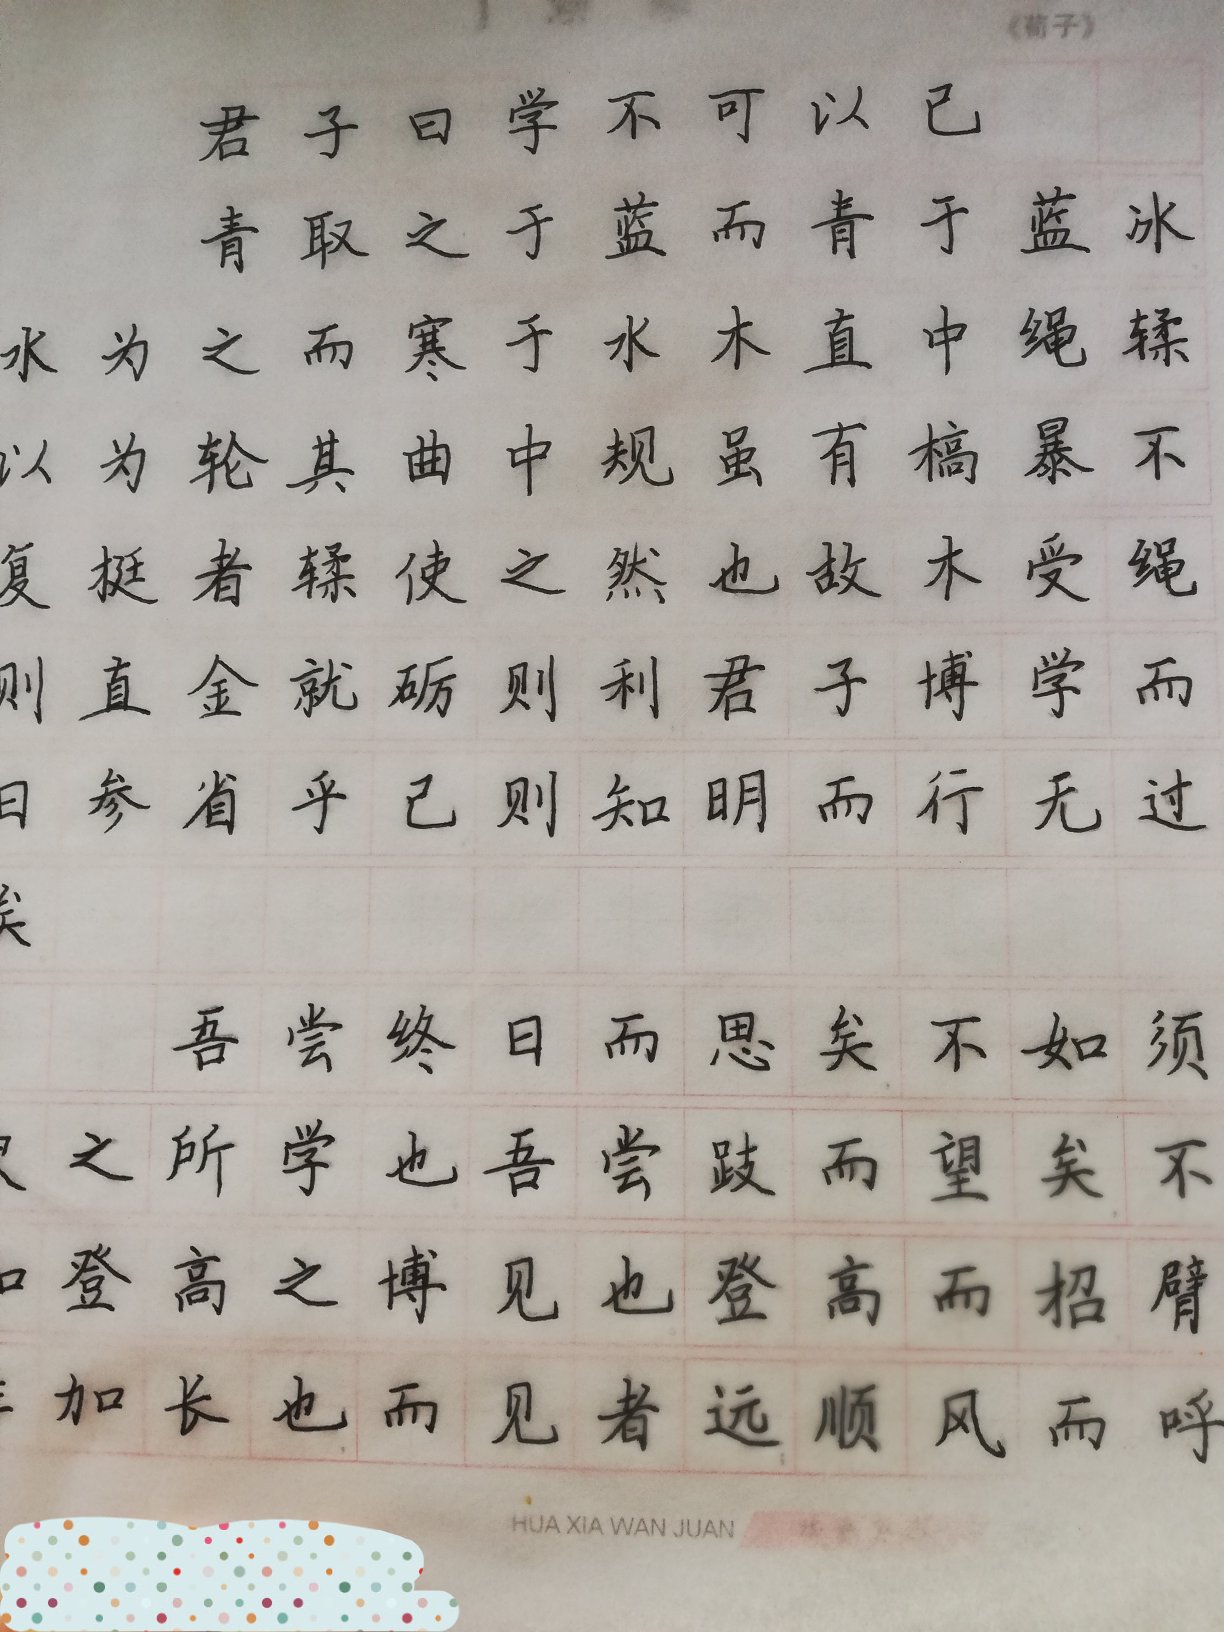 《荀子》
君子曰学不可以已
青取之于蓝而青于蓝冰
水为之而寒于水木直中绳輮
以为轮其曲中规虽有槁暴不
复挺者輮使之然也故木受绳
则直金就砺则利君子博学而
日参省乎己则知明而行无过
矣
吾尝终日而思矣不如须
之所学也吾尝跂而望矣不
登高之博见也登高而招臂
加长也而见者远顺风而呼
HUA XIA WAN JUAN